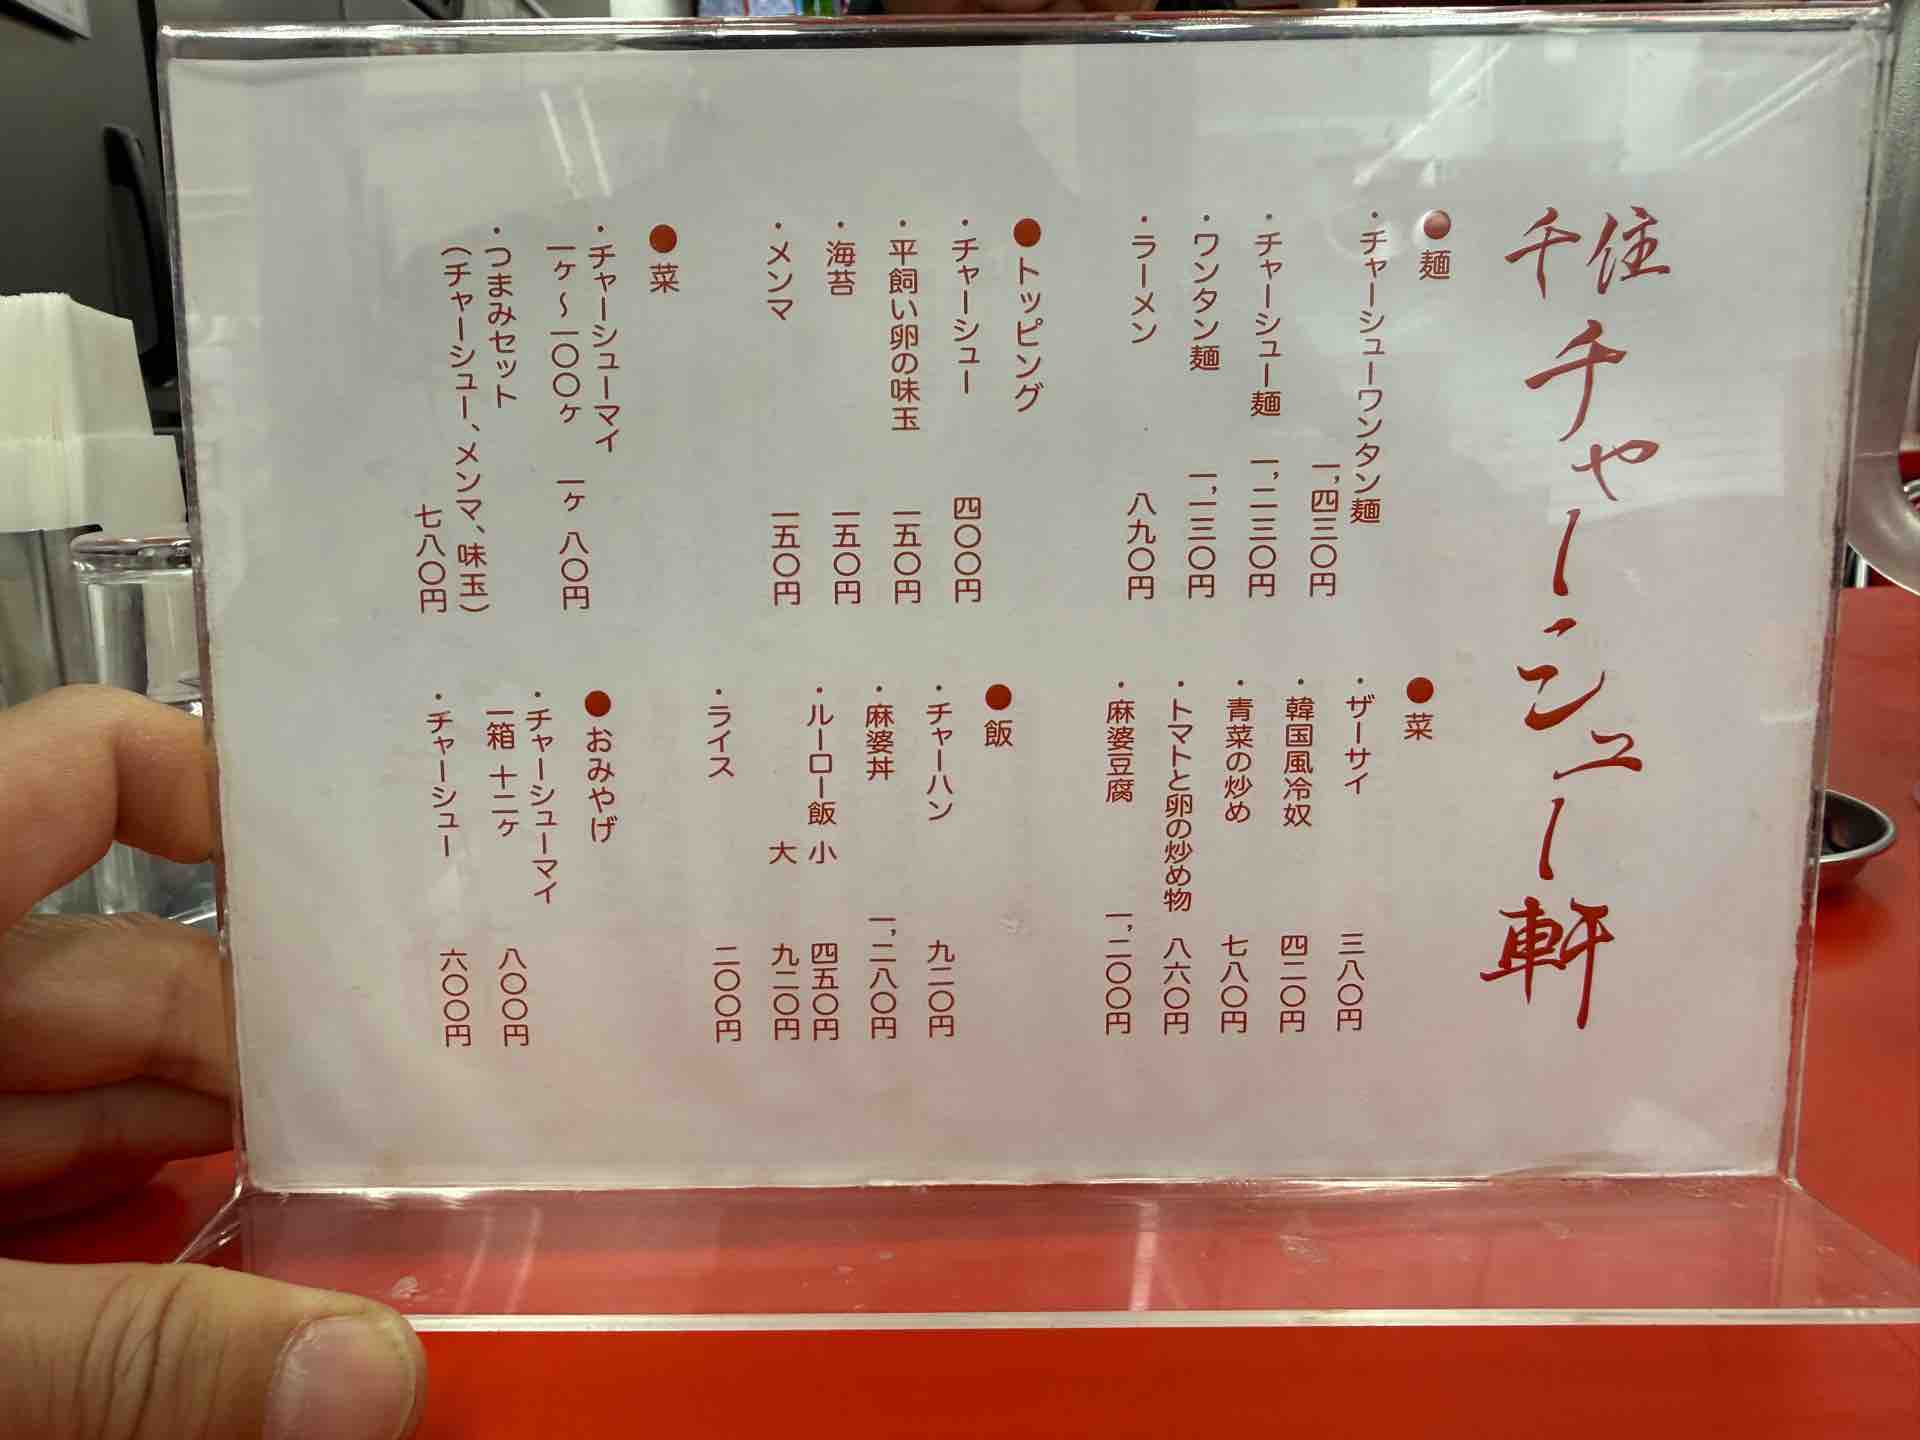 千住 チャーシュー軒
●麺
・チャーシューワンタン麺 一,四三〇円
・チャーシュー麺 一,二三〇円
・ワンタン麺 一,一三〇円
・ラーメン 八九〇円
●トッピング
・チャーシュー 四〇〇円
・平飼い卵の味玉 一五〇円
・海苔 一五〇円
・メンマ 一五〇円
●菜
・チャーシューマイ
一ヶ～一〇〇ヶ 一ヶ 八〇円
・つまみセット
（チャーシュー、メンマ、味玉）
七八〇円
●菜
・ザーサイ 三八〇円
・韓国風冷奴 四二〇円
・青菜の炒め 七八〇円
・トマトと卵の炒め物 八六〇円
・麻婆豆腐 一,二〇〇円
●飯
・チャーハン 九二〇円
・麻婆丼 一,二八〇円
・ルーロー飯 小 四五〇円
大 九二〇円
・ライス 二〇〇円
●おみやげ
・チャーシューマイ
一箱 十二ヶ 八〇〇円
・チャーシュー 六〇〇円